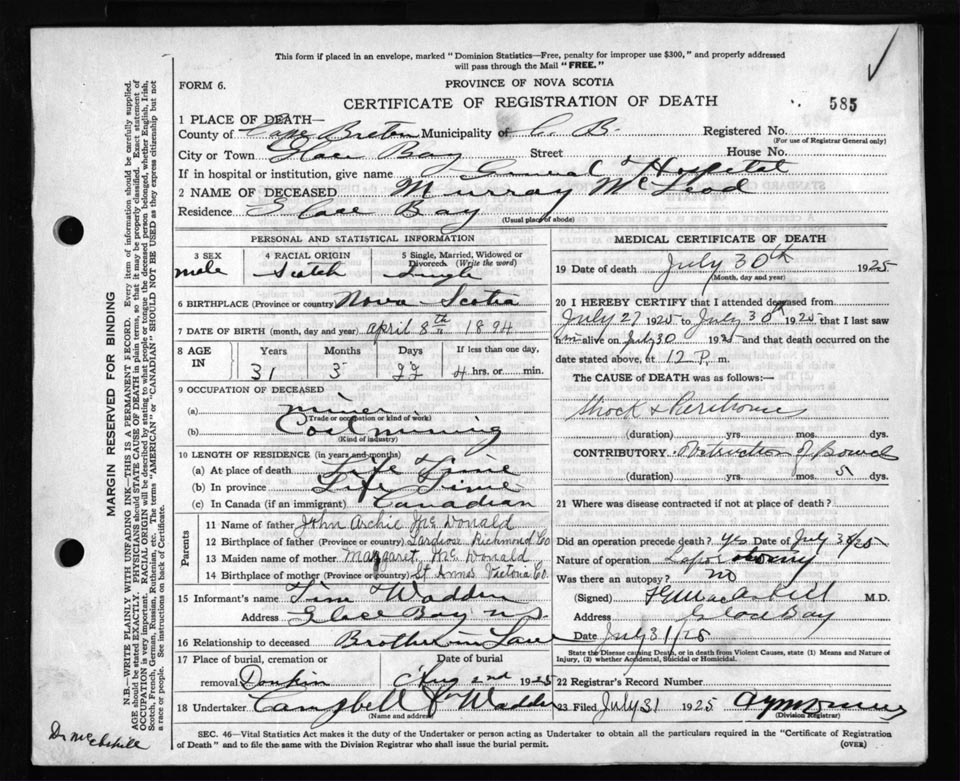 This form if placed in an envelope, marked "Dominion Statistics—Free, penalty for improper use $300," and properly addressed
will pass through the Mail "FREE."
FORM 6.
PROVINCE OF NOVA SCOTIA
CERTIFICATE OF REGISTRATION OF DEATH
585
1 PLACE OF DEATH—
County of Cape Breton Municipality of C. B. Registered No.
(For use of Registrar General only)
City or Town Glace Bay Street House No.
If in hospital or institution, give name General Hospital
2 NAME OF DECEASED Murray McLeod
Residence Glace Bay
(Usual place of abode)
PERSONAL AND STATISTICAL INFORMATION
3 SEX
male
4 RACIAL ORIGIN
Scotch
5 Single, Married, Widowed or
Divorced (Write the word)
Single
6 BIRTHPLACE (Province or country) Nova Scotia
7 DATE OF BIRTH (month, day and year) April 8th 1894
8 AGE IN
Years Months Days If less than one day,
31 3 22 4 hrs. or min.
9 OCCUPATION OF DECEASED
(a) miner
(Trade or occupation or kind of work)
(b) Coal mining
(Kind of industry)
10 LENGTH OF RESIDENCE (in years and months)
(a) At place of death Life Time
(b) In province Life Time
(c) In Canada (if an immigrant) Canadian
Parents
11 Name of father John Archie McDonald
12 Birthplace of father (Province or country) Richmond Co
13 Maiden name of mother Margaret McDonald
14 Birthplace of mother (Province or country) St Anns Victoria Co.
15 Informant's name Tim Wadden
Address Glace Bay N S
16 Relationship to deceased Brother in Law
17 Place of burial, cremation or
removal Donkin
Date of burial
2nd 1925
18 Undertaker Campbell & Wadden
(Name and address)
MEDICAL CERTIFICATE OF DEATH
19 Date of death July 30th 1925
(Month, day and year)
20 I HEREBY CERTIFY that I attended deceased from
July 27 1925 to July 30th 1925, that I last saw
him alive on July 30 1925 and that death occurred on the
date stated above, at 12 P. m.
The CAUSE of DEATH was as follows:—
Shock &
(duration) yrs. mos. dys.
CONTRIBUTORY Obstruction of Bowel
(duration) yrs. mos. 5 dys.
21 Where was disease contracted if not at place of death?
Did an operation precede death? yes Date of July 30/25
Nature of operation Laporotomy
Was there an autopsy? no
(Signed) M.D.
Address Glace Bay
Date July 31/25
State the Disease causing Death, or in death from Violent Causes, state (1) Means and Nature of
Injury, (2) whether Accidental, Suicidal or Homicidal.
22 Registrar's Record Number
23 Filed July 31 1925
(Division Registrar)
SEC. 46—Vital Statistics Act makes it the duty of the Undertaker or person acting as Undertaker to obtain all the particulars required in the "Certificate of Registration
of Death" and to file the same with the Division Registrar who shall issue the burial permit.
(OVER)
MARGIN RESERVED FOR BINDING
N.B.—WRITE PLAINLY WITH UNFADING INK—THIS IS A PERMANENT RECORD. Every item of information should be carefully supplied.
AGE should be stated EXACTLY. PHYSICIANS should STATE CAUSE OF DEATH in plain terms, so that it may be properly classified. Exact statement of
OCCUPATION is very important. RACIAL ORIGIN will be described by stating to what people or tongue the deceased person belonged, whether English, Irish,
Scotch, French, German, Russian, Ruthenian, etc. The terms "AMERICAN" or "CANADIAN" SHOULD NOT BE USED as they express citizenship but not
a race or people. See instructions on back of Certificate.